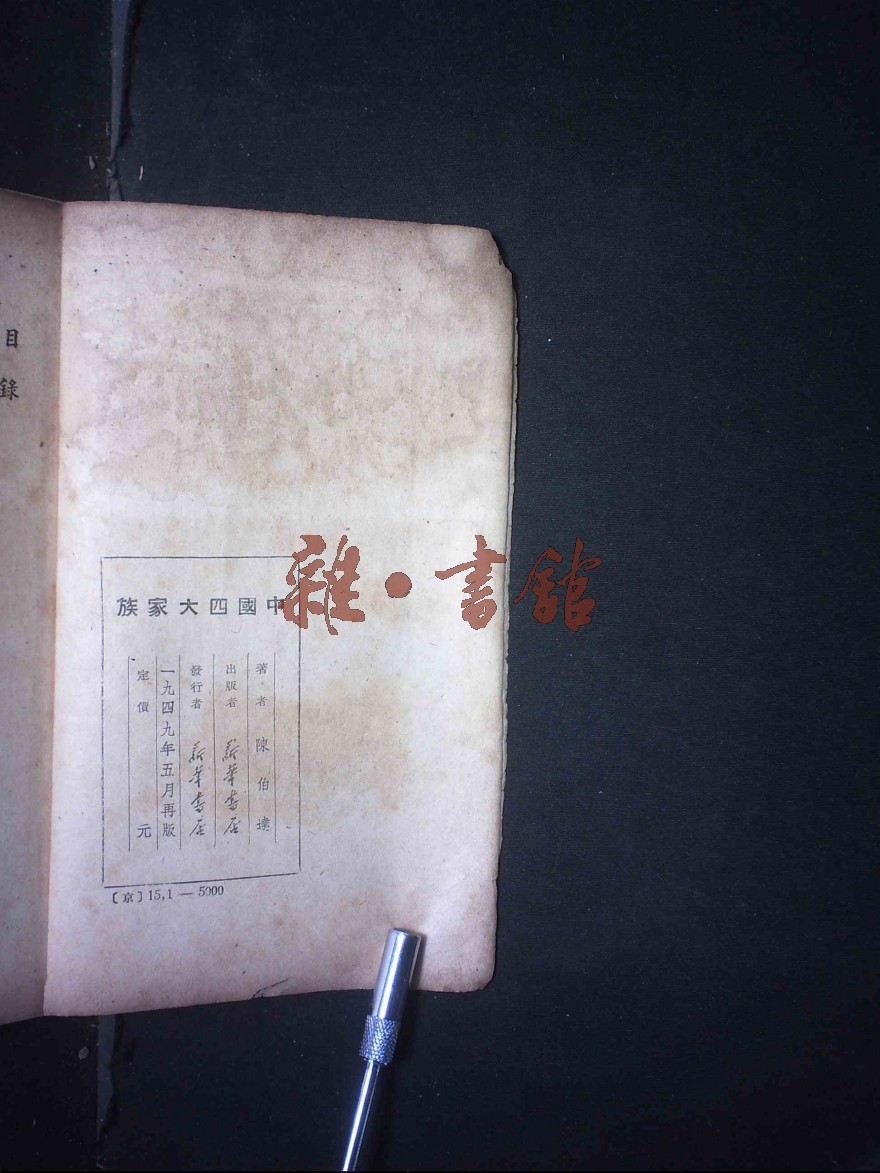 目錄
中國四大家族
著者 陳伯達
出版者 新華書店
發行者 新華書店
一九四九年五月再版
定價 元
〔京〕15,1 — 5000
雜·書館